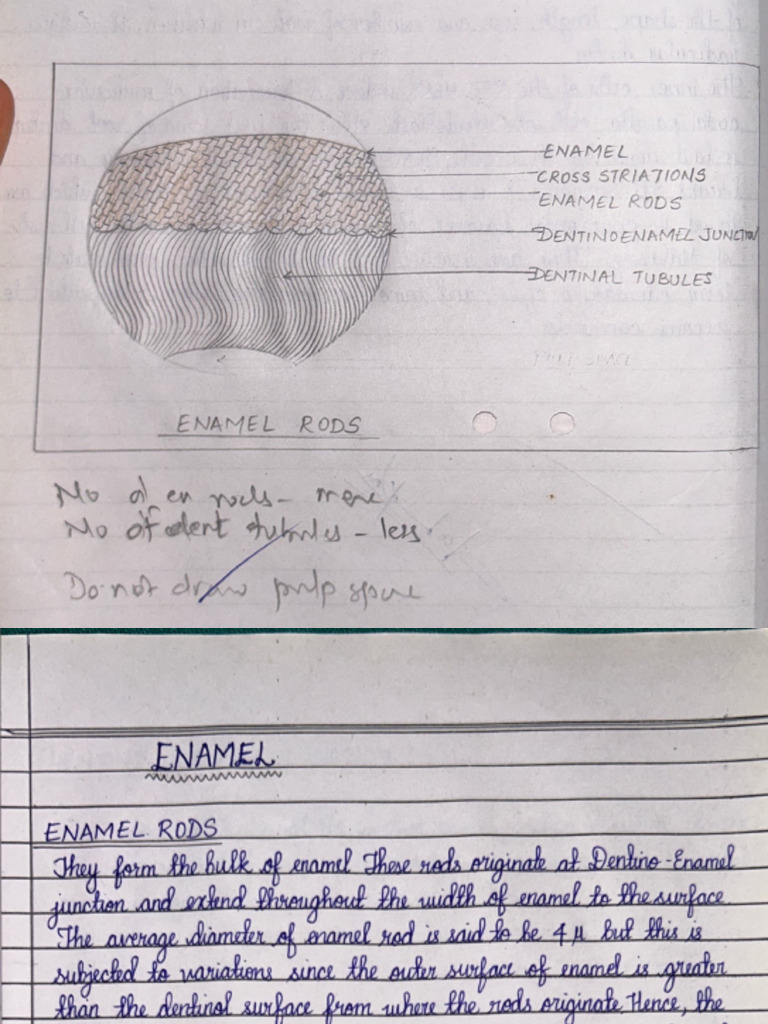 ENAMEL
CROSS STRIATIONS
ENAMEL RODS
DENTINOENAMEL JUNCTION
DENTINAL TUBULES
PULP SPACE
ENAMEL RODS
No of en rods - more
No of dent tubules - less
Do not draw pulp space
ENAMEL
ENAMEL RODS
They form the bulk of enamel These rods originate at Dentino-Enamel
junction and extend throughout the width of enamel to the surface
The average diameter of enamel rod is said to be 4 μ but this is
subjected to variations since the outer surface of enamel is greater
than the dentinal surface from where the rods originate. Hence, the